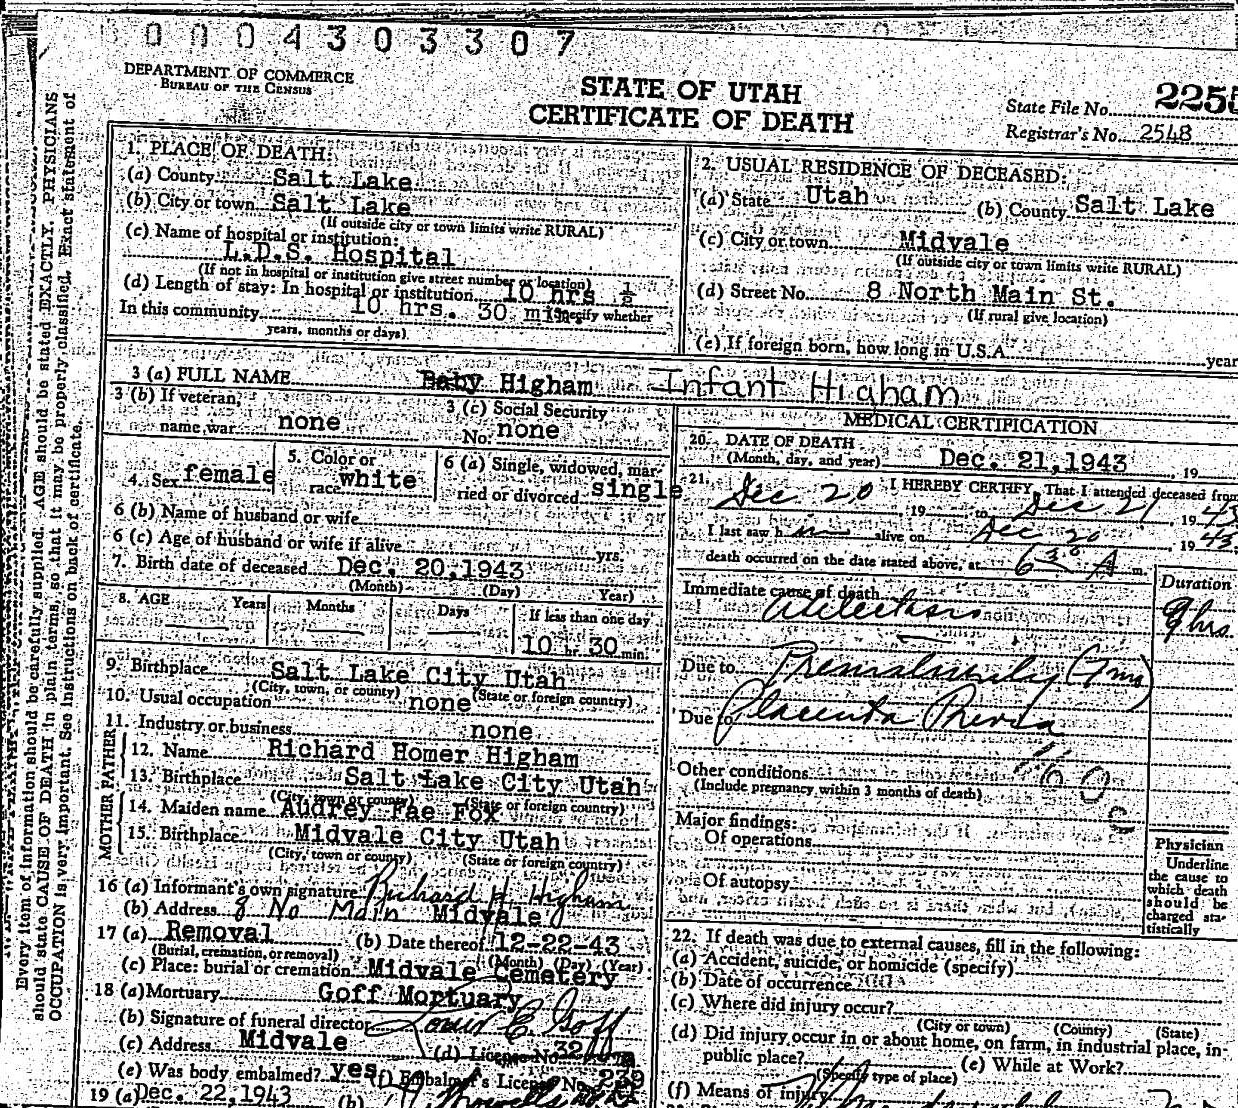 0004303307
DEPARTMENT OF COMMERCE
BUREAU OF THE CENSUS
STATE OF UTAH
CERTIFICATE OF DEATH
State File No. 2255
Registrar's No. 2548
Every item of information should be carefully supplied. AGE should be stated EXACTLY. PHYSICIANS
should state CAUSE OF DEATH in plain terms, so that it may be properly classified. Exact statement of
OCCUPATION is very important. See instructions on back of certificate.
1. PLACE OF DEATH:
(a) County Salt Lake
(b) City or town Salt Lake
(If outside city or town limits write RURAL)
(c) Name of hospital or institution:
L.D.S. Hospital
(If not in hospital or institution give street number or location)
(d) Length of stay: In hospital or institution 10 hrs ½
In this community 10 hrs. 30 min. (Specify whether
years, months or days)
2. USUAL RESIDENCE OF DECEASED:
(a) State Utah (b) County Salt Lake
(c) City or town Midvale
(If outside city or town limits write RURAL)
(d) Street No. 8 North Main St.
(If rural give location)
(e) If foreign born, how long in U.S.A. year
3 (a) FULL NAME Baby Higham Infant Higham
3 (b) If veteran,
name war none
3 (c) Social Security
No. none
4. Sex female
5. Color or
race white
6 (a) Single, widowed, mar-
ried or divorced single
6 (b) Name of husband or wife
6 (c) Age of husband or wife if alive yrs.
7. Birth date of deceased Dec. 20,1943
(Month) (Day) Year)
8. AGE Years Months Days If less than one day
10 hr. 30 min.
9. Birthplace Salt Lake City Utah
(City, town, or county) (State or foreign country)
10. Usual occupation none
11. Industry or business none
FATHER
12. Name Richard Homer Higham
13. Birthplace Salt Lake City Utah
(City, town or county) (State or foreign country)
MOTHER
14. Maiden name Audrey Fae Fox
15. Birthplace Midvale City Utah
(City, town or county) (State or foreign country)
16 (a) Informant's own signature Richard H. Higham
(b) Address 8 No Main Midvale
17 (a) Removal (b) Date thereof 12-22-43
(Burial, cremation, or removal) (Month) (Day) (Year)
(c) Place: burial or cremation Midvale Cemetery
18 (a) Mortuary Goff Mortuary
(b) Signature of funeral director Louis E. Goff
(c) Address Midvale (d) License No. 32
(e) Was body embalmed? yes (f) Embalmer's License No.
19 (a) Dec. 22,1943 (b)
MEDICAL CERTIFICATION
20. DATE OF DEATH
(Month, day, and year) Dec. 21,1943 19
21. I HEREBY CERTIFY, That I attended deceased from
Dec 20 19 to Dec 21 1943
I last saw h im alive on Dec 20 1943
death occurred on the date stated above, at 6 30 A m.
Duration
Immediate cause of death
Atelectasis 9 hrs
Due to Prematurity (7 mo)
Due to Placenta Previa
160 c
Other conditions
(Include pregnancy within 3 months of death)
Major findings:
Of operations
Of autopsy
Physician
Underline
the cause to
which death
should be
charged sta-
tistically
22. If death was due to external causes, fill in the following:
(a) Accident, suicide, or homicide (specify)
(b) Date of occurrence
(c) Where did injury occur?
(City or town) (County) (State)
(d) Did injury occur in or about home, on farm, in industrial place, in-
public place? (e) While at Work?
(Specify type of place)
(f) Means of injury